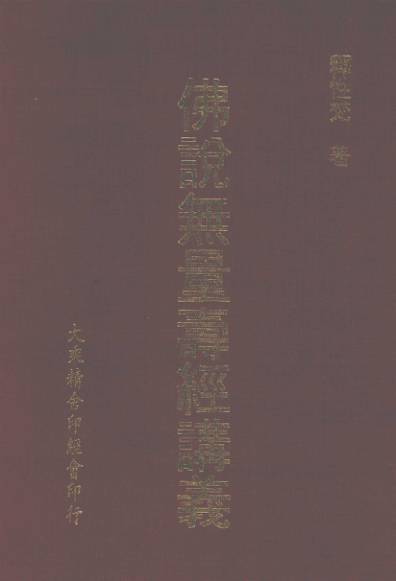 釋性梵 著
佛說無量壽經講義
大乘精舍印經會印行